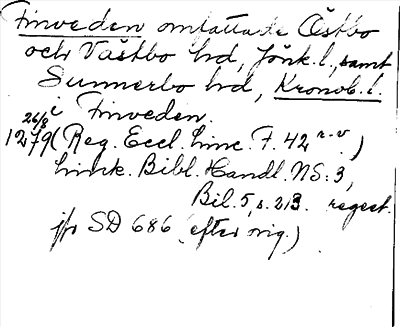 Finveden omfattade Östbo
och Västbo hd, Jönk. l., samt
Sunnerbo hd, Kronob. l.
26/8 i Finveden.
1279 (Reg. Eccl. Linc. F. 42 r-v.)
Linck. Bibl. Handl. NS: 3,
Bil. 5, s. 213. regest.
jfr SD 686 (efter orig.)